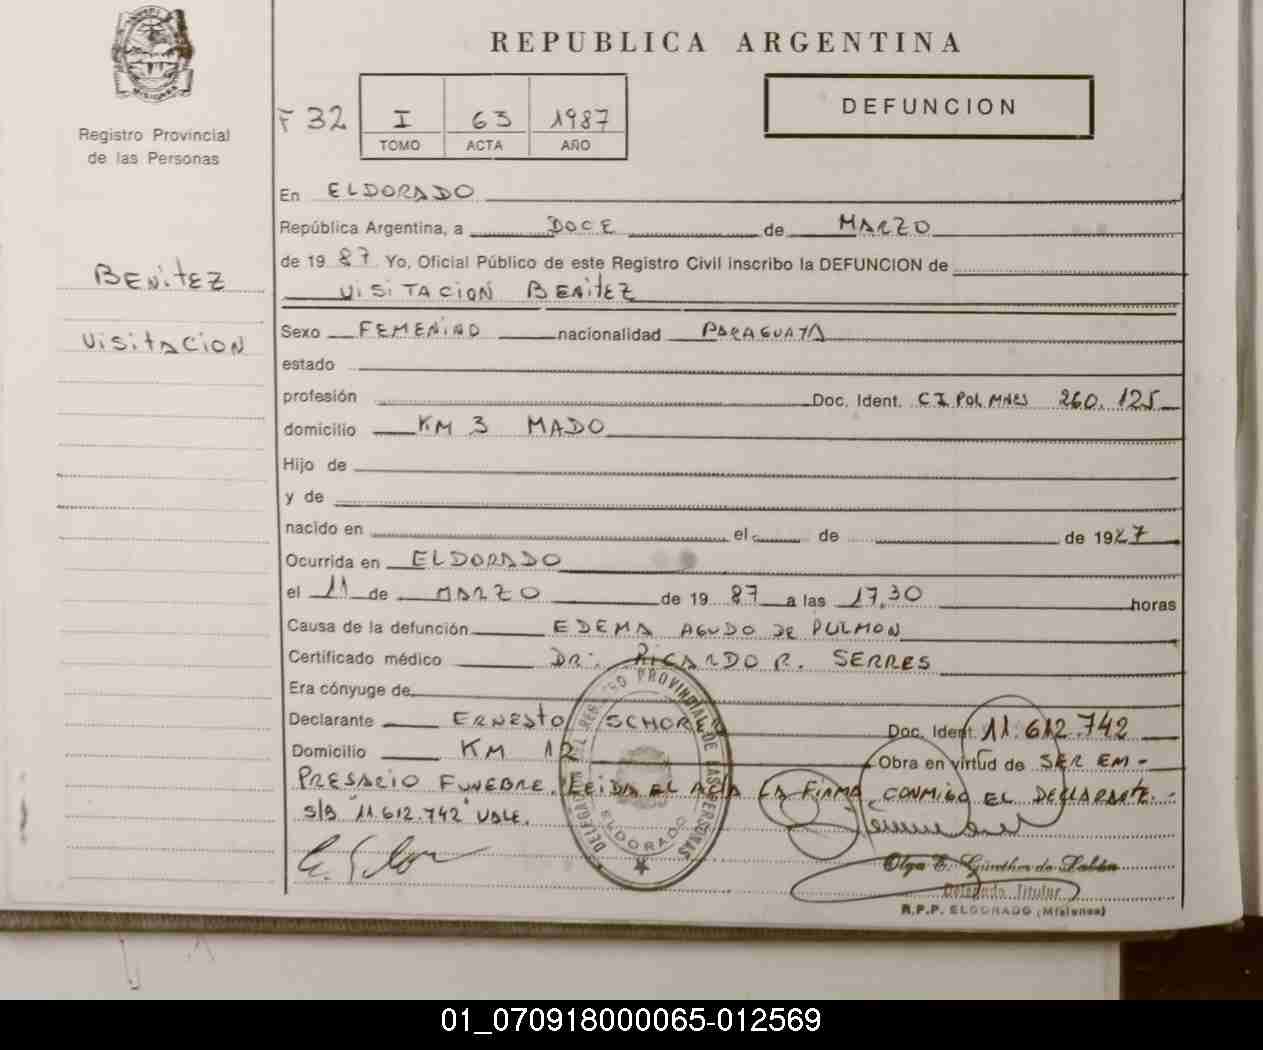 REPUBLICA ARGENTINA
MISIONES
Registro Provincial
de las Personas
F 32
I 63 1987
TOMO ACTA AÑO
DEFUNCION
BENITEZ
VISITACION
En ELDORADO
República Argentina, a DOCE de MARZO
de 19 87 Yo, Oficial Público de este Registro Civil inscribo la DEFUNCION de
VISITACION BENITEZ
Sexo FEMENINO nacionalidad PARAGUAYA
estado
profesión Doc. Ident. C.I POL MNES 260.125
domicilio KM 3 MADO
Hijo de
y de
nacido en el de de 1927
Ocurrida en ELDORADO
el 11 de MARZO de 19 87 a las 17,30 horas
Causa de la defunción EDEMA AGUDO DE PULMON
Certificado médico DR: RICARDO R. SERRES
Era cónyuge de
Declarante ERNESTO SCHOR Doc. Ident. 11.612.742
Domicilio KM 12 Obra en virtud de SER EM-
PRESARIO FUNEBRE. LEIDA EL ACTA LA FIRMA CONMIGO EL DECLARANTE.-
S/B "11.612.742" VALE.
DEL REGISTRO PROVINCIAL DE LAS PERSONAS
ELDORADO
Olga E. Günther de
Delegada Titular
R.P.P. ELDORADO (Misiones)
01_070918000065-012569